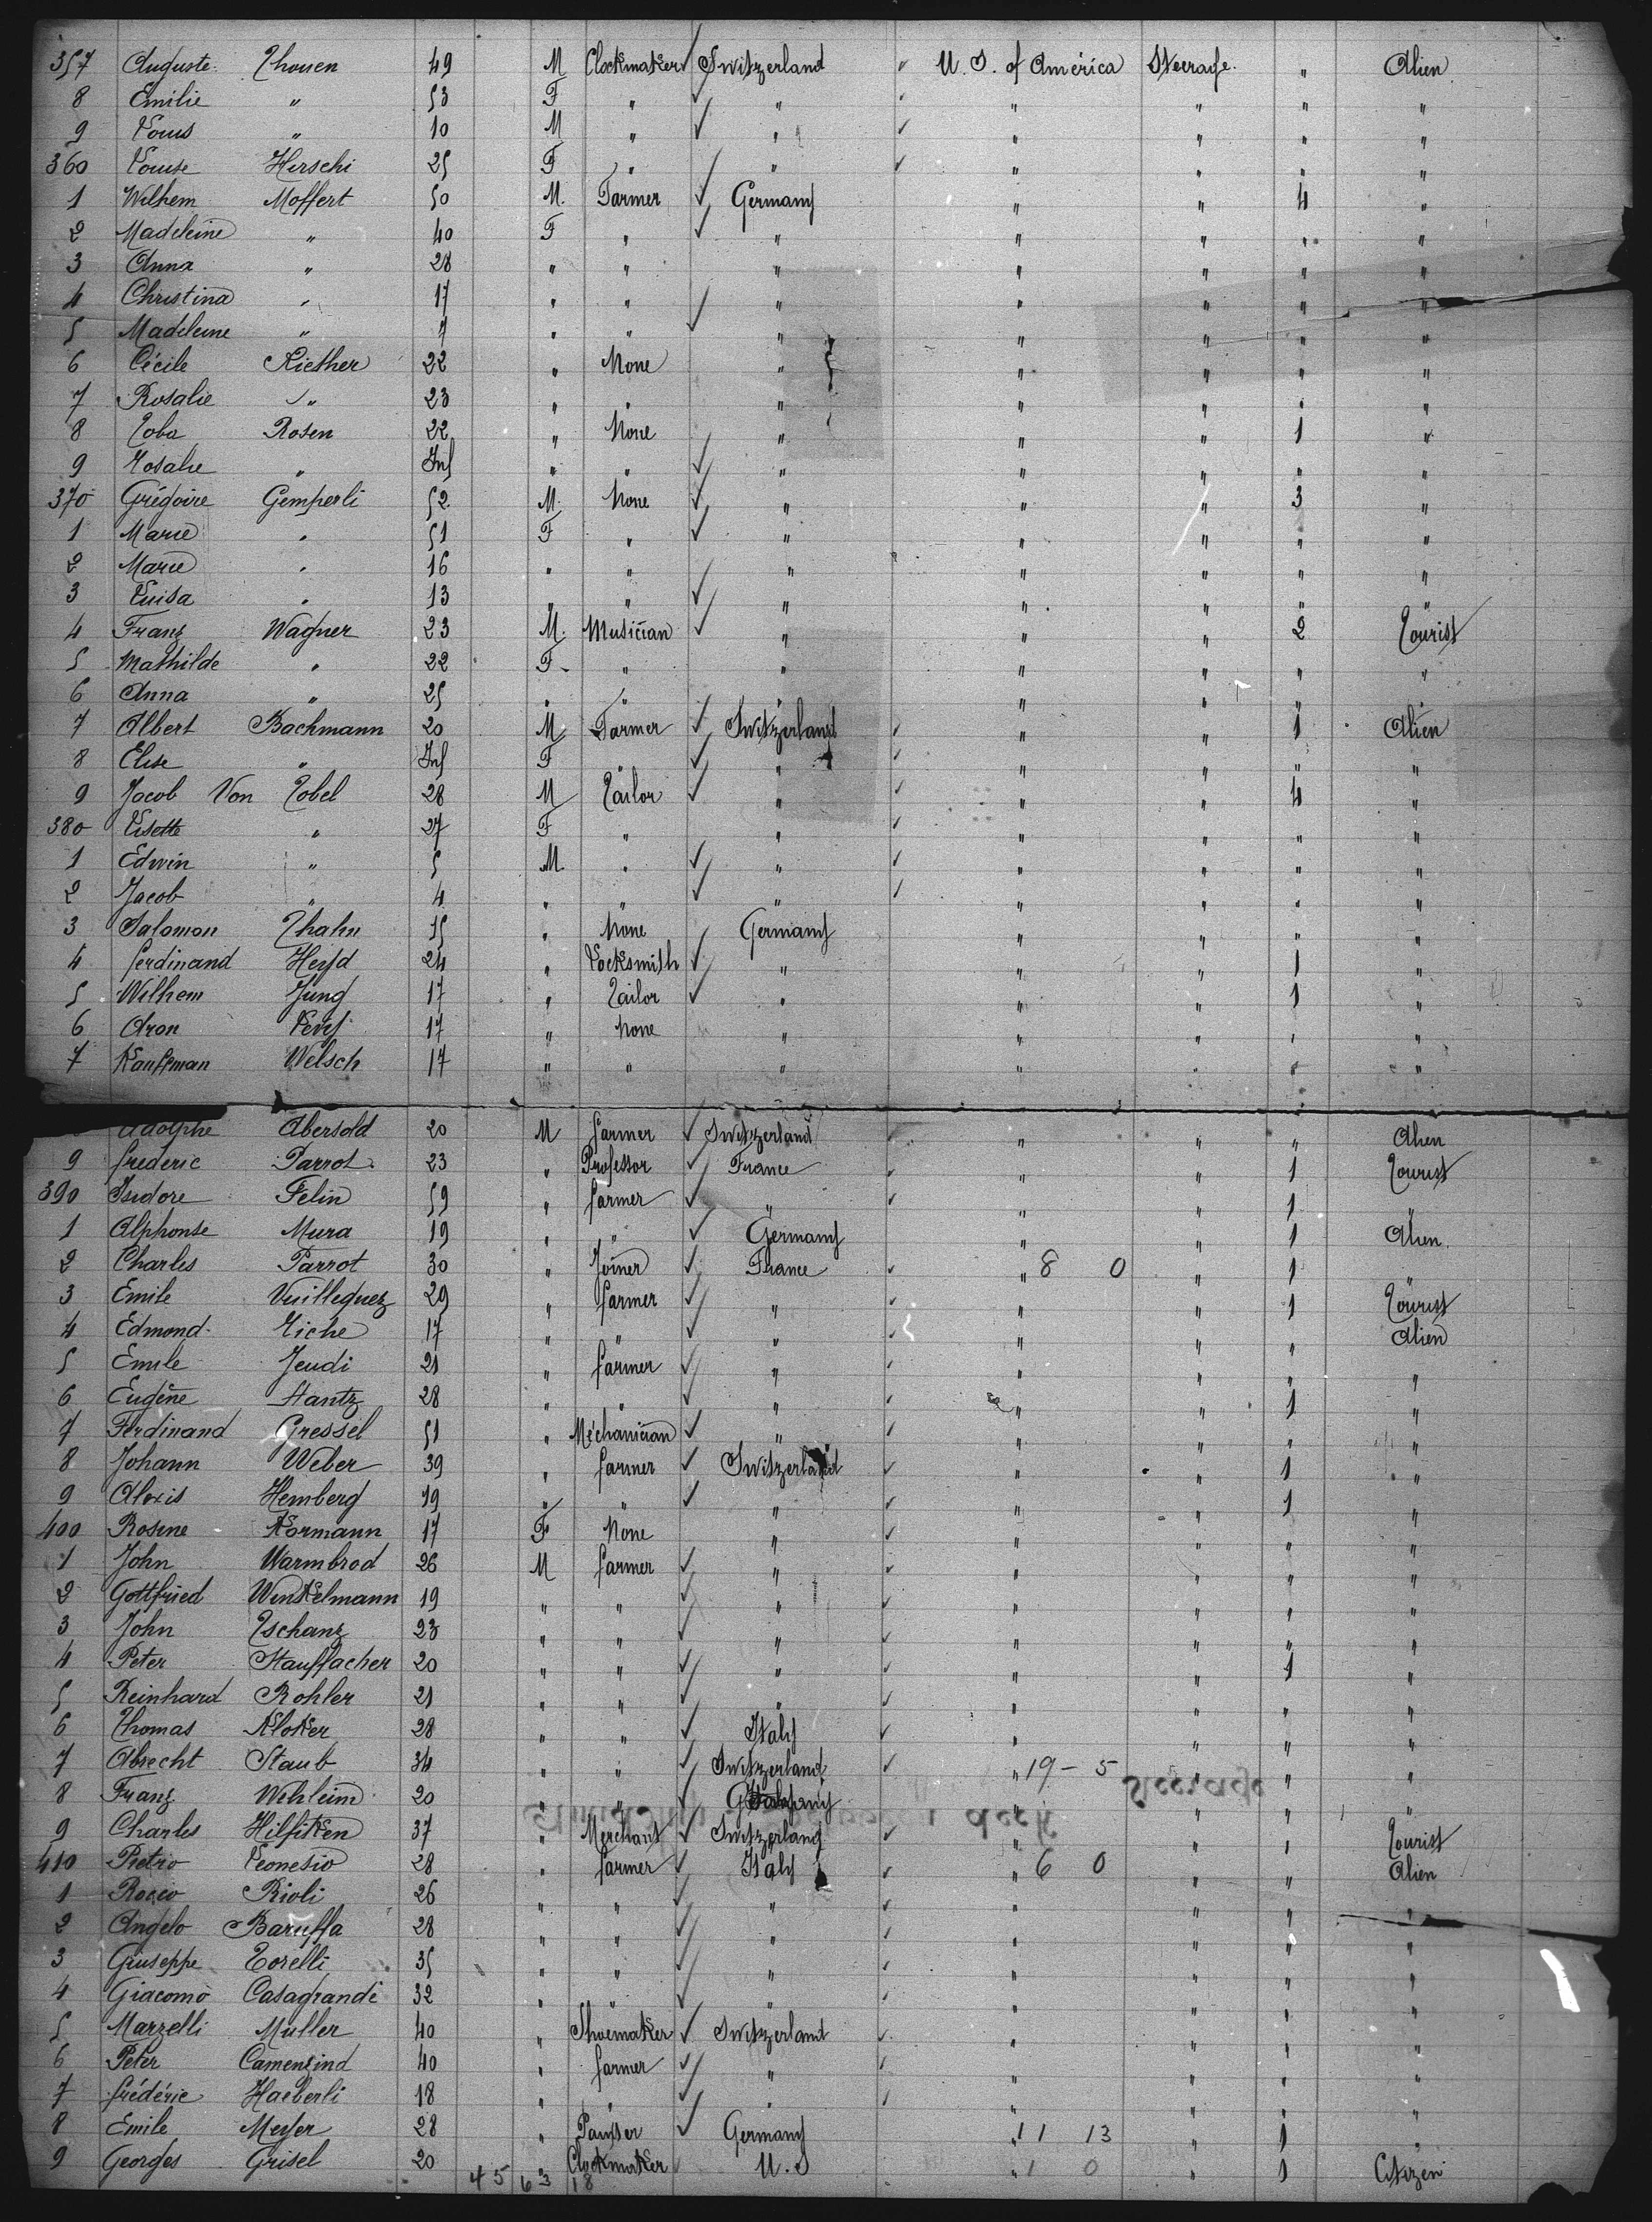 357 Auguste Thouen 49 M Clockmaker Switzerland U. S. of America Steerage " Alien
8 Emilie " 53 F " " " " " "
9 Louis " 10 M " " " " " "
360 Louise Herschi 25 F " " " " " "
1 Wilhem Moffert 50 M. Farmer Germany " " 4 "
2 Madeleine " 40 F " " " " " "
3 Anna " 28 " " " " " " "
4 Christina " 17 " " " " " " "
5 Madeleine " 7 " " " " " " "
6 Cécile Riether 22 " None " " " " "
7 Rosalie " 23 " " " " " " "
8 Toba Rosen 22 " None " " " 1 "
9 Rosalie " Inf " " " " " " "
370 Grégoire Gemperli 52 M. None " " " 3 "
1 Marie " 51 F " " " " " "
2 Marie " 16 " " " " " " "
3 Luisa " 13 " " " " " " "
4 Franz Wagner 23 M. Musician " " " 2 Tourist
5 Mathilde " 22 F " " " " " "
6 Anna " 25 " " " " " " "
7 Albert Bachmann 20 M Farmer Switzerland " " 1 Alien
8 Elise " Inf F " " " " " "
9 Jacob Von Tobel 28 M Tailor " " " 4 "
380 Lisette " 27 F " " " " " "
1 Edwin " 5 M. " " " " " "
2 Jacob " 4 " " " " " " "
3 Salomon Thahn 15 " None Germany " " " "
4 Ferdinand Heyd 24 " Locksmith " " " 1 "
5 Wilhem Jung 17 " Tailor " " " 1 "
6 Aron Levy 17 " None " " " " "
7 Kauffman Welsch 17 " " " " " " "
Adolphe Abersold 20 M Farmer Switzerland " " " Alien
9 Frederic Parrot 23 " Professor France " " 1 Tourist
390 Isidore Felin 59 " Farmer " " " 1 "
1 Alphonse Mura 19 " " Germany " " 1 Alien
2 Charles Parrot 30 " Joiner France " 8 0 " 1 "
3 Emile Vuillequez 29 " Farmer " " " 1 Tourist
4 Edmond Riche 17 " " " " " " Alien
5 Emile Jeudi 21 " Farmer " " " " "
6 Eugène Hantz 28 " " " " " 1 "
7 Ferdinand Gressel 51 " Méchanician " " " " "
8 Johann Weber 39 " Farmer Switzerland " " 1 "
9 Alexis Hemberg 19 " " " " " 1 "
400 Rosine Kormann 17 F None " " " " "
1 John Warmbrod 26 M Farmer " " " " "
2 Gottfried Winkelmann 19 " " " " " " "
3 John Tschanz 23 " " " " " " "
4 Peter Stauffacher 20 " " " " " 1 "
5 Reinhard Rohler 21 " " " " " " "
6 Thomas Kloker 28 " " Italy " " " "
7 Abrecht Staub 34 " " Switzerland " 19 - 5 " " "
8 Franz Wehleim 20 " " Germany " " " "
9 Charles Hilfiken 37 " Merchant Switzerland " " " Tourist
410 Pietro Leonesio 28 " Farmer Italy " 6 0 " " Alien
1 Rocco Rioli 26 " " " " " " "
2 Angelo Baruffa 28 " " " " " " "
3 Giuseppe Torelli 35 " " " " " " "
4 Giacomo Casagrande 32 " " " " " " "
5 Marzelli Muller 40 " Shoemaker Switzerland " " " "
6 Peter Camenzind 40 " Farmer " " " " "
7 Frédéric Haeberli 18 " " " " " " "
8 Emile Meyer 28 " Painter Germany " 11 13 " 1 "
9 Georges Grisel 20 " Clockmaker U. S " 1 0 " 1 Citizen
45 63 18